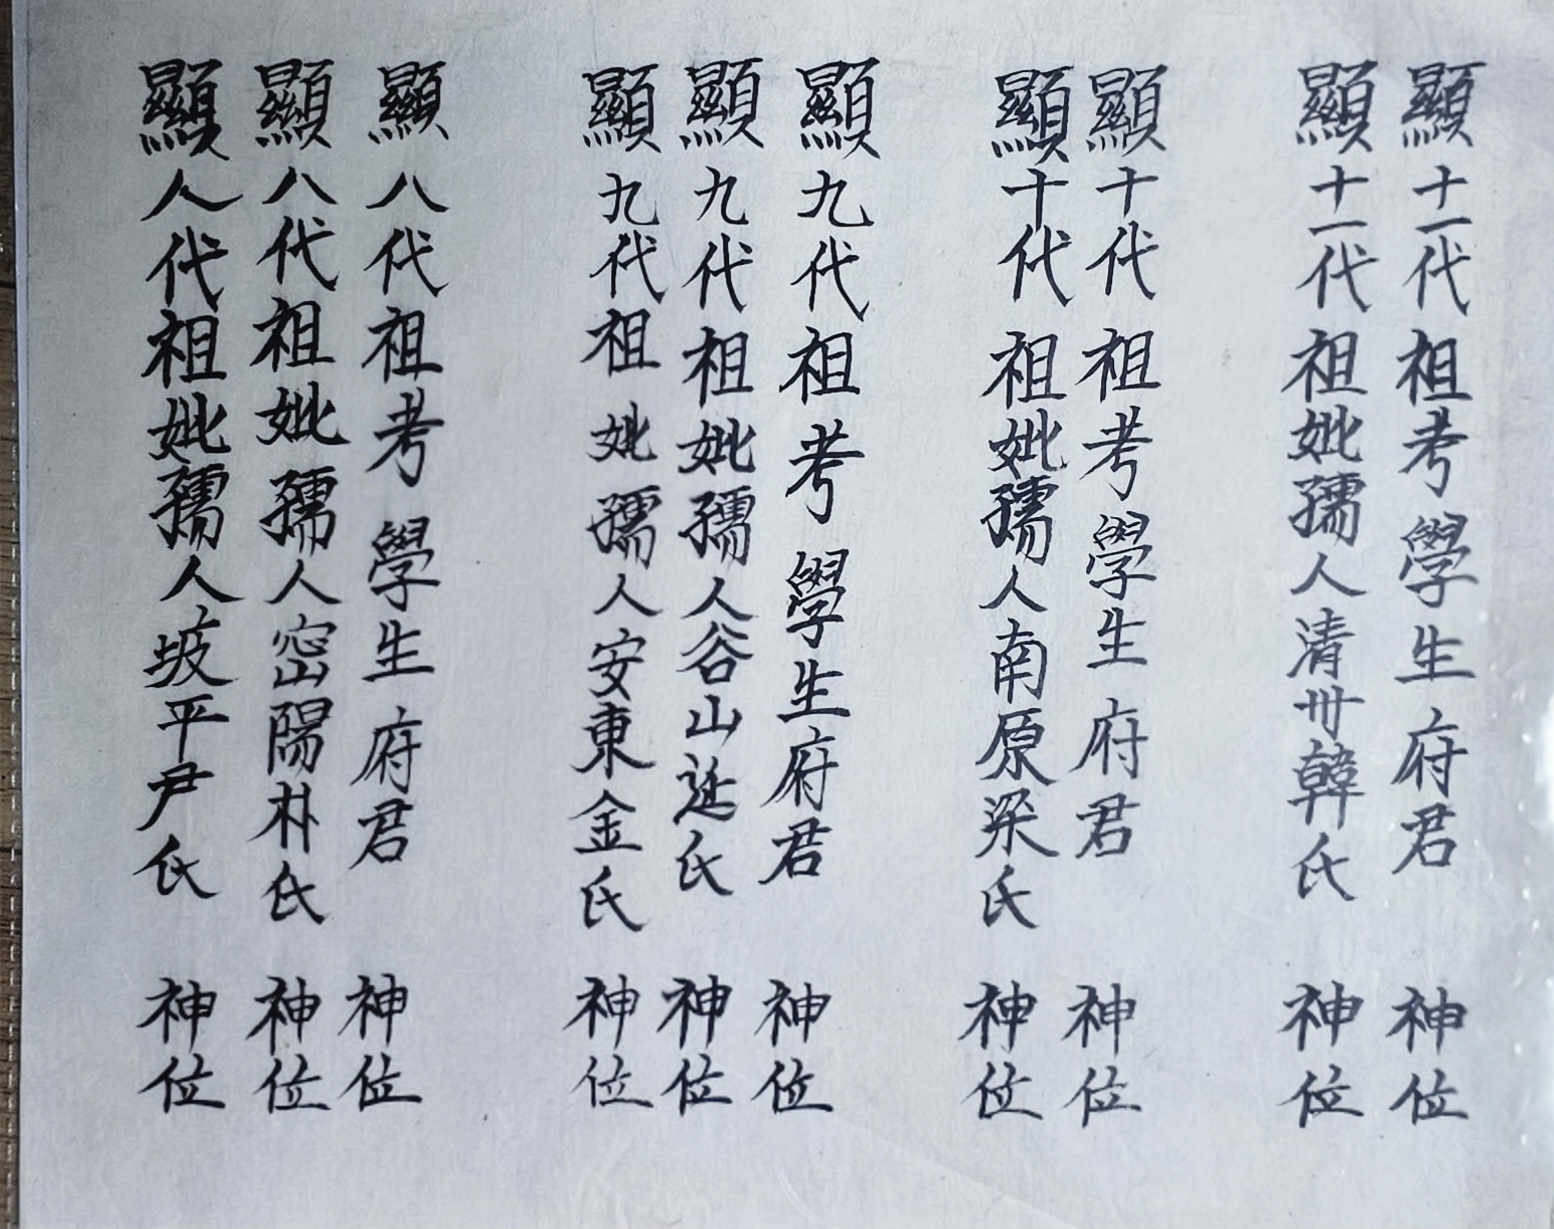 顯十一代祖考學生府君神位
顯十一代祖妣孺人清州韓氏神位
顯十代祖考學生府君神位
顯十代祖妣孺人南原梁氏神位
顯九代祖考學生府君神位
顯九代祖妣孺人谷山延氏神位
顯九代祖妣孺人安東金氏神位
顯八代祖考學生府君神位
顯八代祖妣孺人密陽朴氏神位
顯八代祖妣孺人坡平尹氏神位